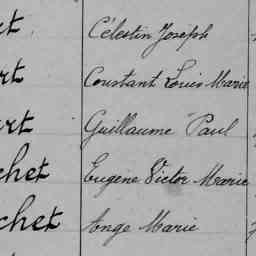 rt Célestin Joseph
rt Constant Louis Marie
rt Guillaume Paul
chet Eugène Victor Marie
chet Ange Marie